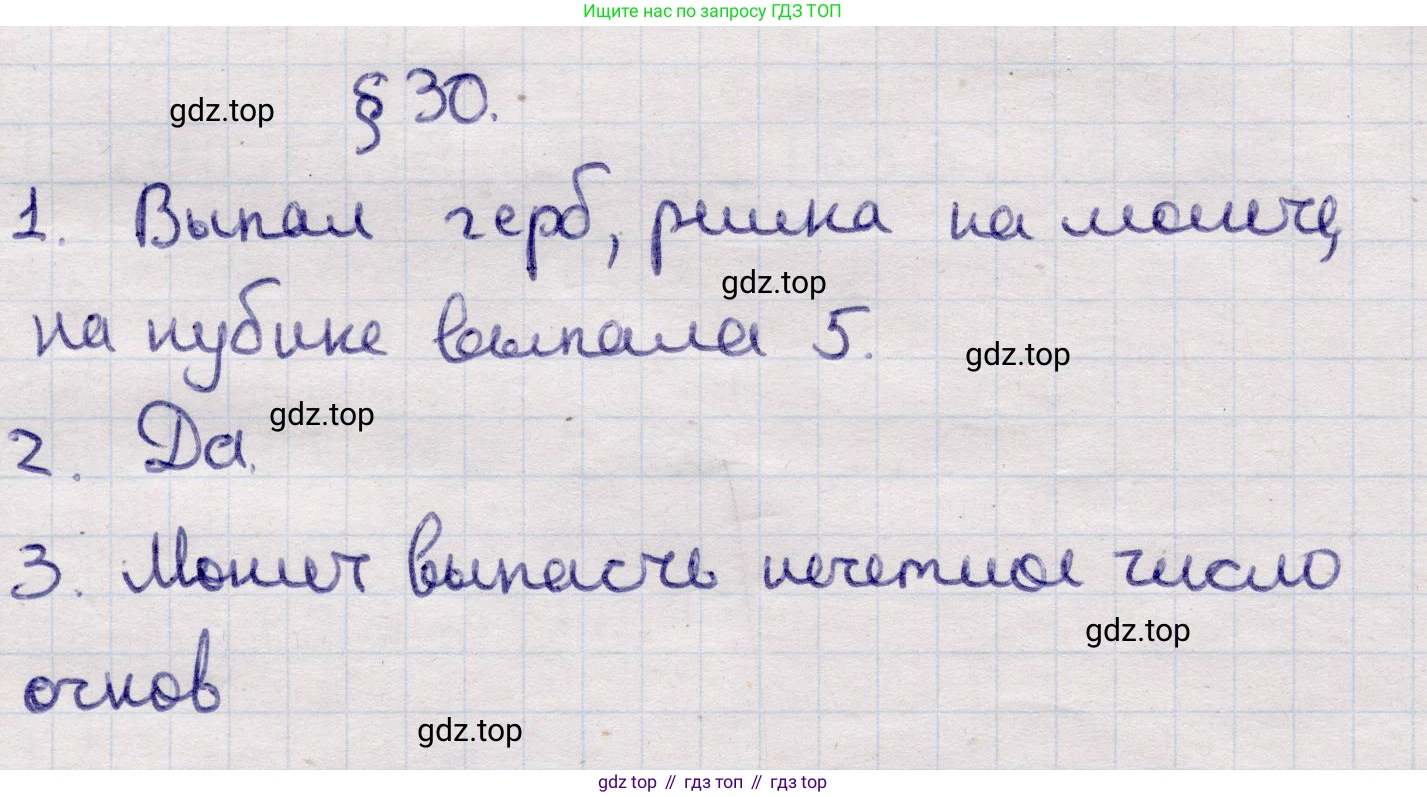 Ищите нас по запросу ГДЗ ТОП
gdz.top
§ 30.
1. Выпал герб, решка на монете,
gdz.top
на кубике выпала 5.
gdz.top
gdz.top
2. Да.
3. Может выпасть нечетное число
gdz.top
очков
gdz.top
gdz top // гдз топ // gdz top